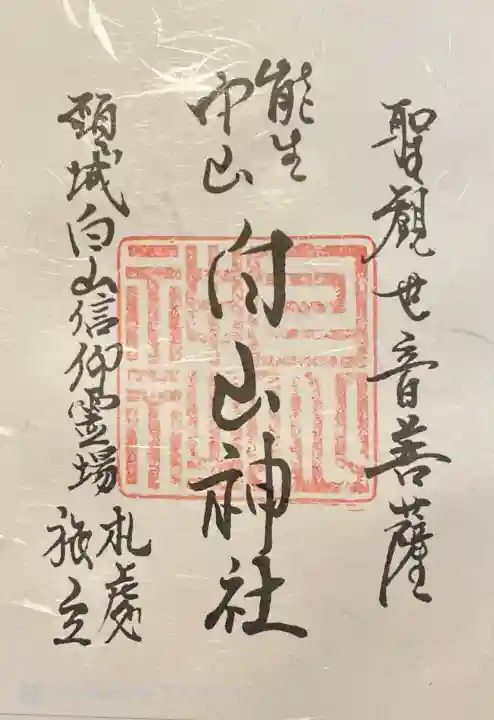 聖観世音菩薩
能生
白山神社
頸城白山信仰霊場
札處
旅立